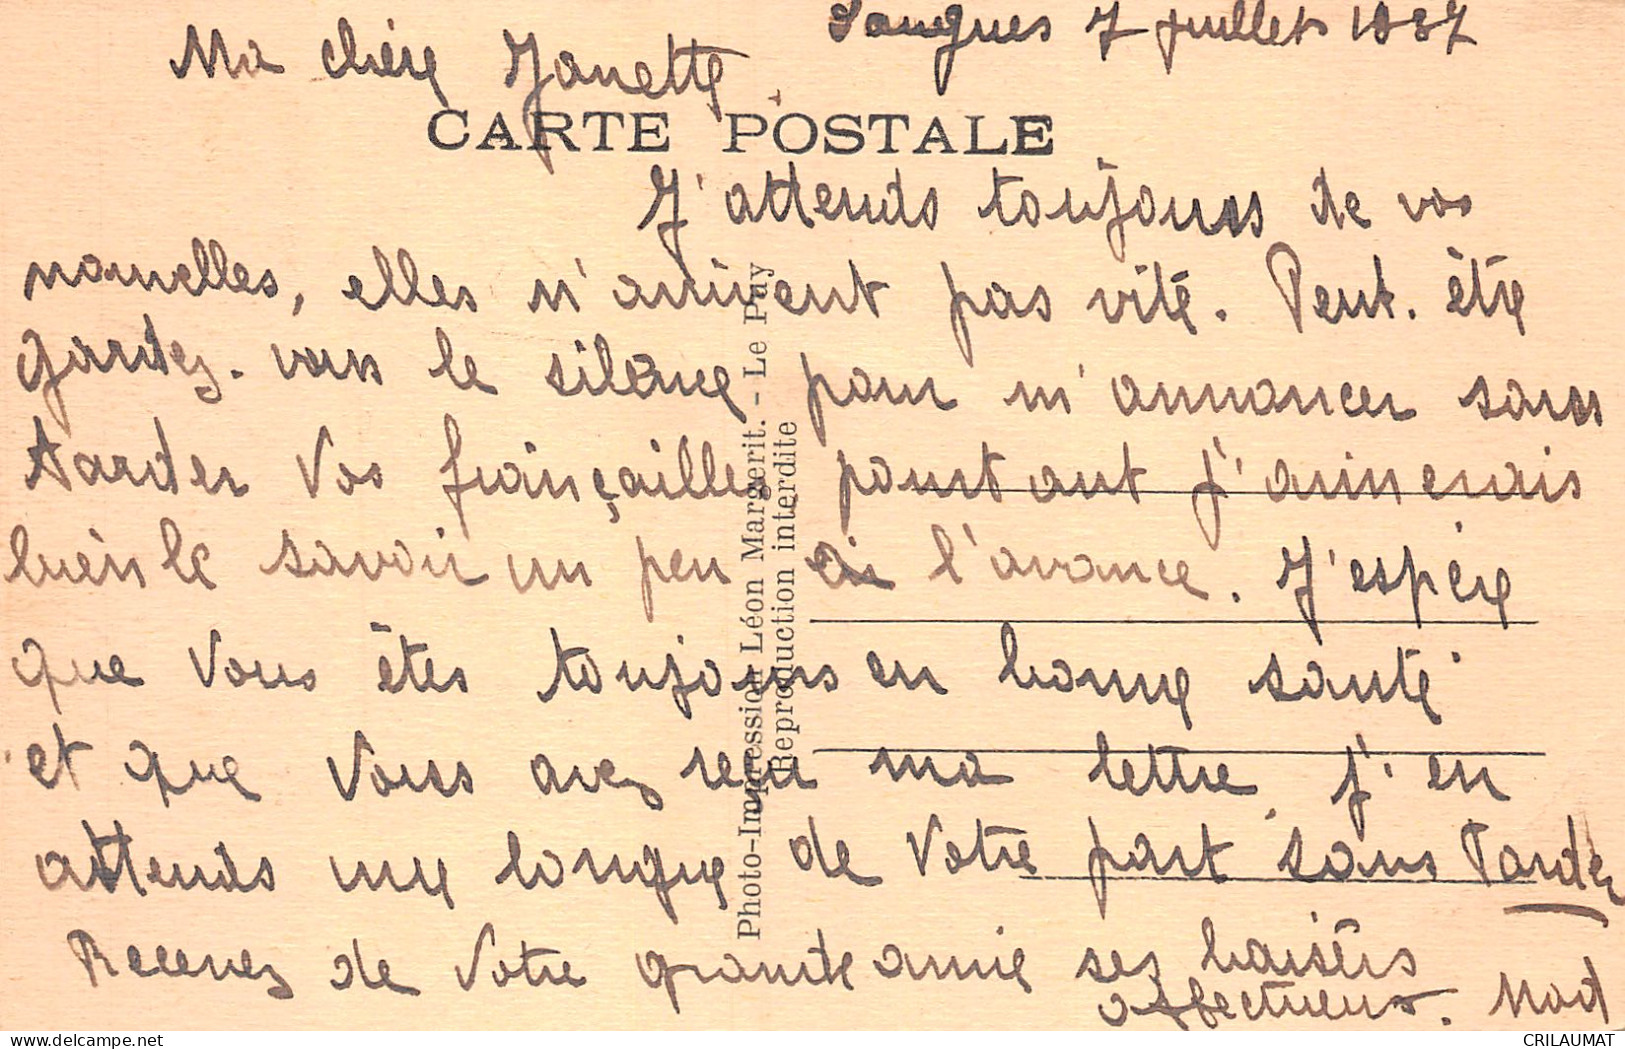 Saugues 7 juillet 1937
Ma chère Janette
CARTE POSTALE
J'attends toujours de vos
nouvelles, elles n'arrivent pas vite. Peut-être
gardez-vous le silence pour m'annoncer sans
tarder vos françailles pourtant j'aimerais
bien le savoir un peu à l'avance. J'espère
que vous êtes toujours en bonne santé
et que vous avez reçu ma lettre, j'en
attends une longue de votre part sans tarder
Recevez de votre grande amie ses baisers
affectueux. Mad
Photo-Impression Léon Margerit. - Le Puy
Reproduction interdite
CRILAUMAT